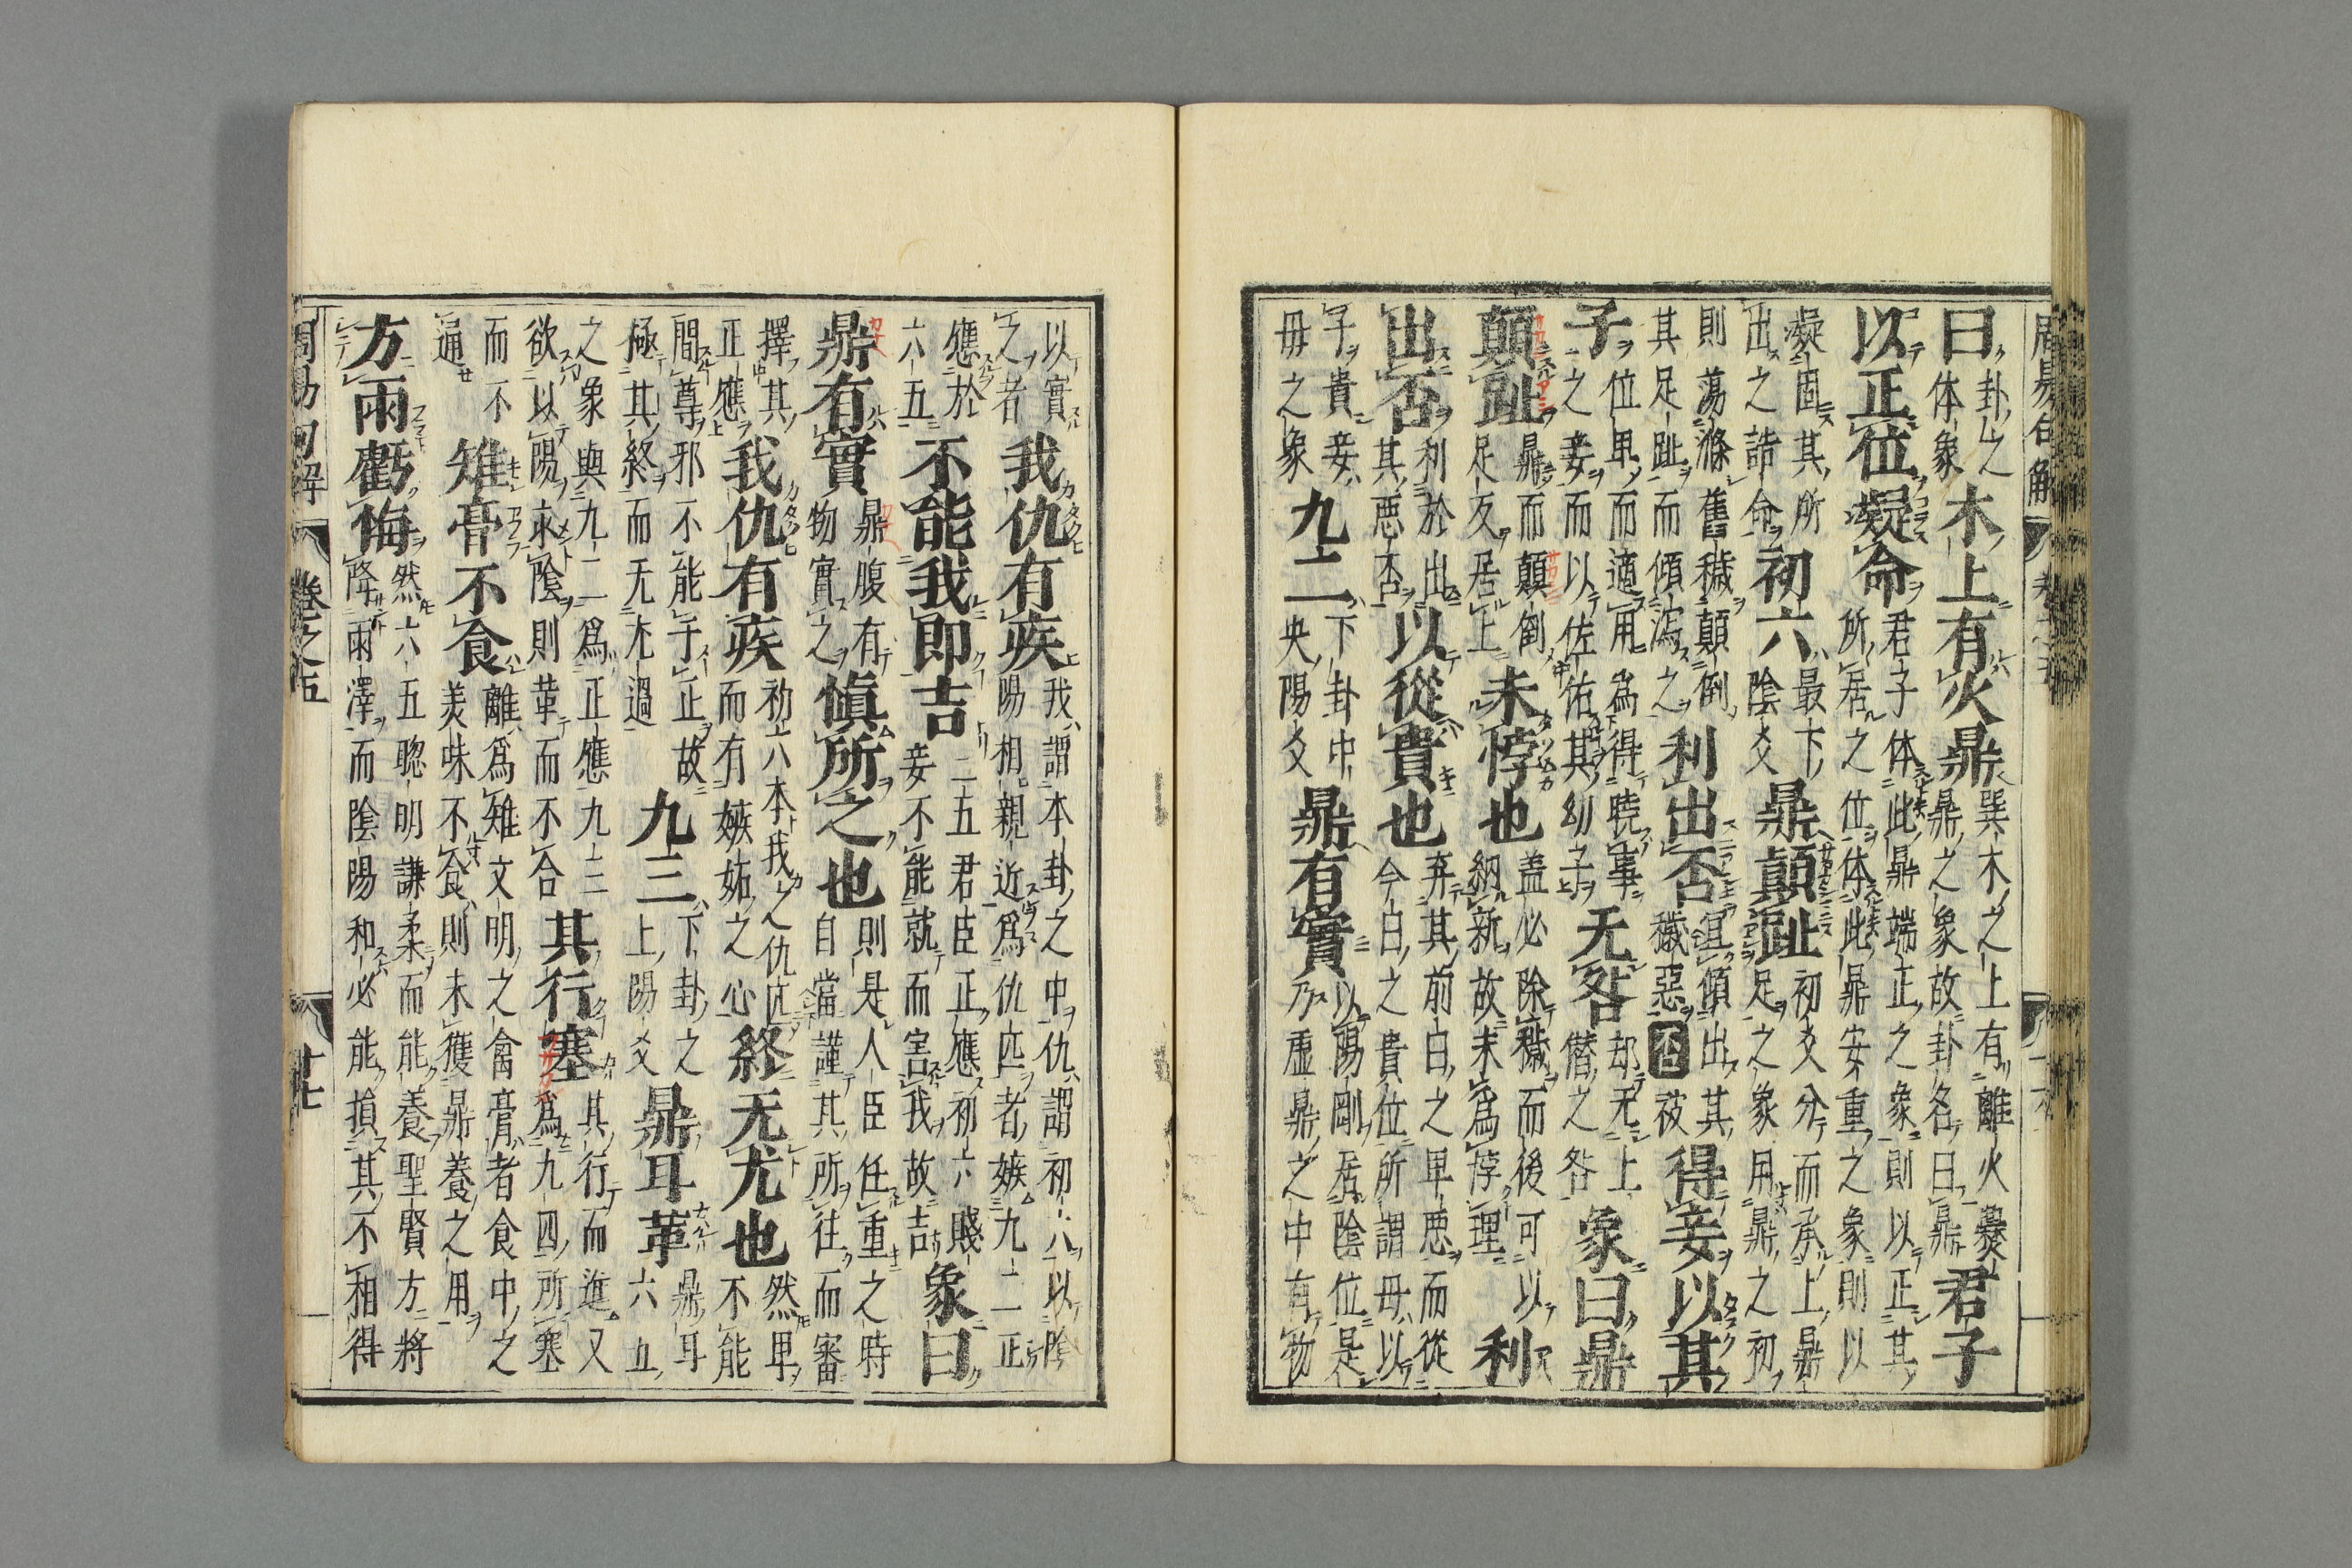 周易句解
曰卦之体象木上有火鼎巽木之上有離火爨鼎之象故卦名曰鼎君子
以正位凝命君子体此鼎端正之象則以正其所居之位体此鼎安重之象則以
凝固其所出之誥命初六最下陰爻鼎顛趾初爻分而承上鼎足之象用鼎之初
則蕩滌舊穢顛倒其足趾而傾瀉之利出否宜傾出其穢惡否得妾以其
子位卑而適用為得曉事之妾而以佐佑其幼子无咎却无上僭之咎象曰鼎
顛趾鼎而顛倒足反居上未悖也盖必除穢而後可以納新故未為悖理利
出否利於出其悪否以從貴也弃其前日之卑悪而從今日之貴位所謂母以
子貴妾毋之象九二下卦中央陽爻鼎有實以陽剛居陰位是乃虚鼎之中有物
以實之者我仇有疾我謂本卦之中仇謂初六以陰陽相親近為仇匹者嫉九二正
應於六五不能我即吉二五君臣正應初六賤妾不能就而害我故吉象曰
鼎有實鼎腹有物實之慎所之也則是人臣任重之時自當謹其所往而審
擇其正應我仇有疾初六本我之仇匹而有嫉妬之心終无尤也然卑不能
間尊邪不能于正故極其終而无尤過九三下卦之上陽爻鼎耳革鼎耳六五
之象與九二為正應九三欲以陽求陰則革而不合其行塞其行而進又為九四所塞
而不通雉膏不食離為雉文明之禽膏者食中之美味不食則未獲鼎養之用
方雨虧悔然六五聡明謙柔而能養聖賢方將降雨澤而陰陽和必能損其不相得
周易句解 卷之五 廿七